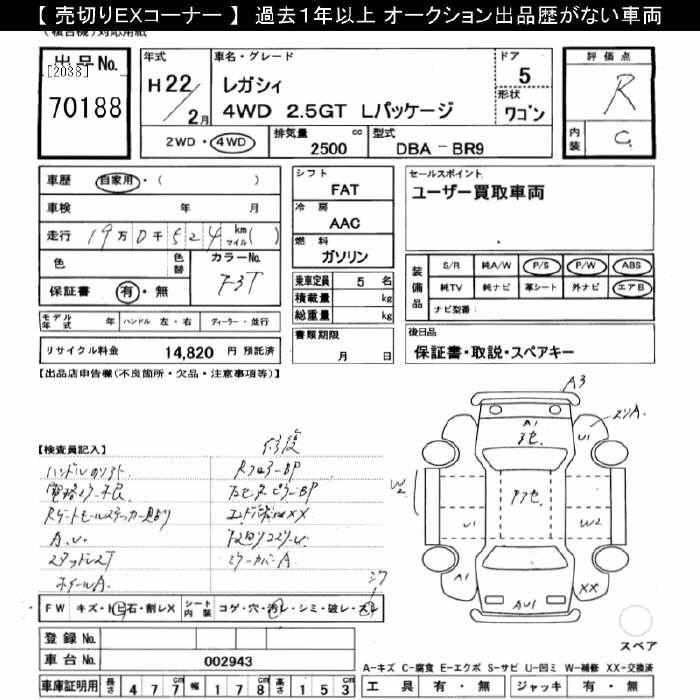 【 売切りEXコーナー 】 過去1年以上 オークション出品歴がない車両
出品No.
[2038]
70188
年式
H22/2月
車名・グレード
レガシィ
4WD 2.5GT Lパッケージ
ドア
5
形状
ワゴン
評価点
R
内装
C
2WD・4WD
排気量
2500 cc
型式
DBA - BR9
車歴 自家用・( )
車検 年 月
走行 19万0千524 km マイル( )
色
色替
カラーNo.
F3T
保証書 有・無
モデル年式 年 ハンドル 左・右 ディーラー・並行
リサイクル料金 14,820 円 預託済
シフト
FAT
冷房
AAC
燃料
ガソリン
乗車定員 5 名
積載量 kg
総重量 kg
書類期限
月 日
セールスポイント
ユーザー買取車両
装備品
S/R 純A/W P/S P/W ABS
純TV 純ナビ 革シート 外ナビ エアB
ナビ型番:
後日品
保証書・取説・スペアキー
【出品店申告欄(不良箇所・欠品・注意事項等)】
【検査員記入】
修復
A.U.
ホイールA
ミラーカバーA
A3
A1
U1
W2
U1
W2
A1
XX
AU1
FW キズ・トビ石・割レX
シート内装
コゲ・穴・汚レ・シミ・破レ・スレ
登録No.
車台No. 002943
車庫証明用 長さ 477cm 幅 178cm 高さ 153cm
スペア
A-キズ C-腐食 E-エクボ S-サビ U-凹ミ W-補修 XX-交換済
工具 有・無 ジャッキ 有・無